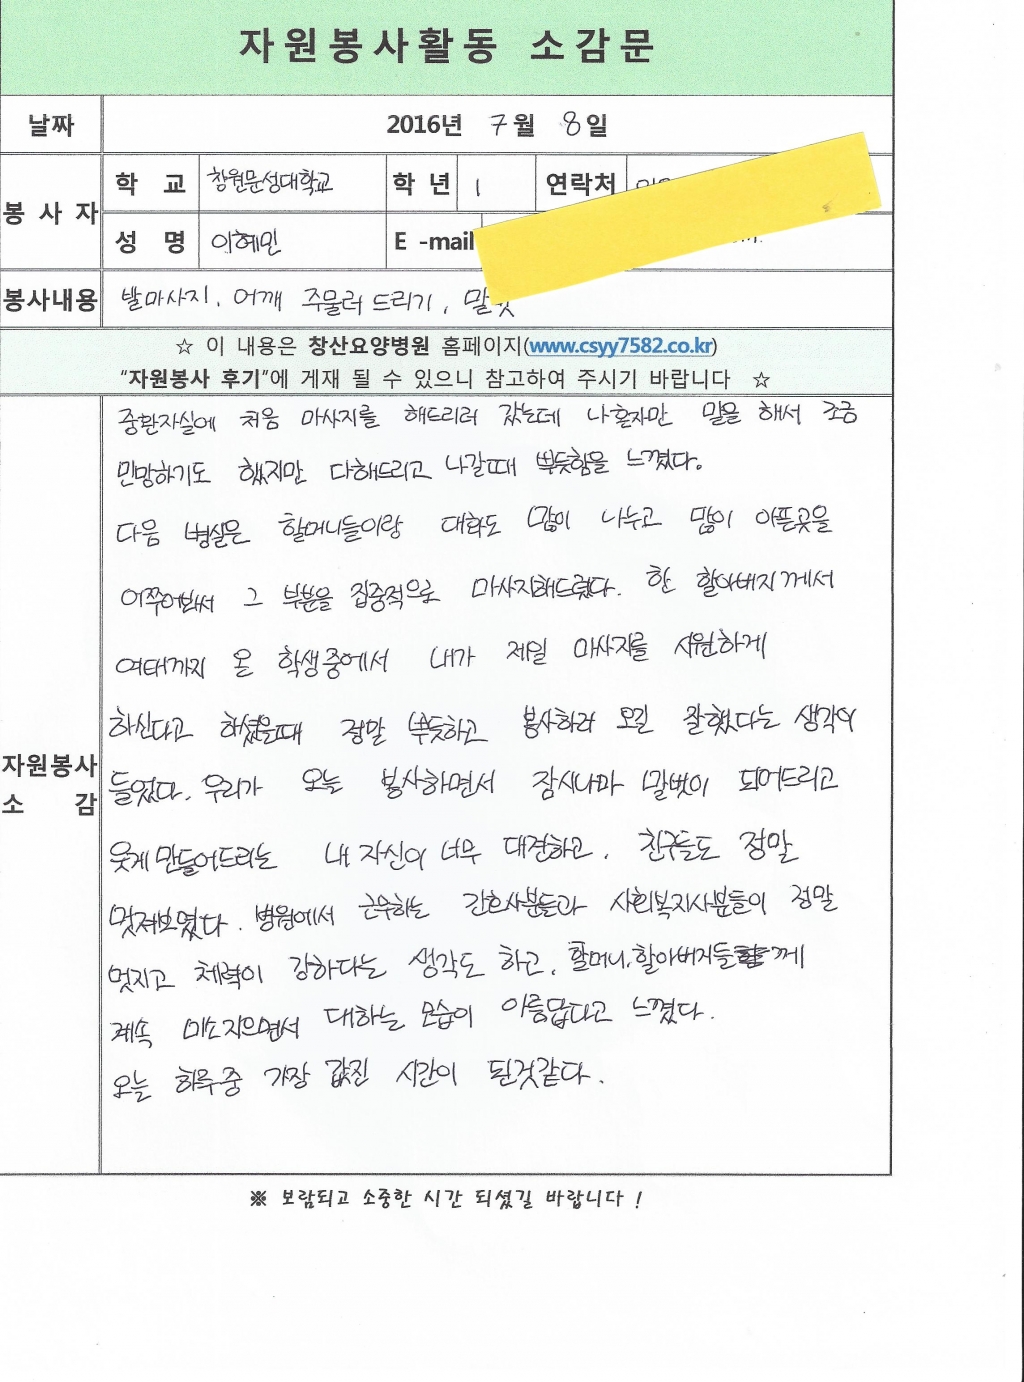 자원봉사활동 소감문
날짜 2016년 7월 8일
봉사자 학 교 창원문성대학교 학 년 1 연락처
성 명 이혜민 E -mail
봉사내용 발마사지, 어깨 주물러 드리기, 말벗
☆ 이 내용은 창산요양병원 홈페이지(www.csyy7582.co.kr)
“자원봉사 후기”에 게재 될 수 있으니 참고하여 주시기 바랍니다 ☆
자원봉사 소 감
중환자실에 처음 마사지를 해드리러 갔는데 나혼자만 말을 해서 조금
민망하기도 했지만 다해드리고 나갈때 뿌듯함을 느꼈다.
다음 병실은 할머니들이랑 대화도 많이 나누고 많이 아픈곳을
여쭈어봐서 그 부분을 집중적으로 마사지해드렸다. 한 할아버지께서
여태까지 온 학생중에서 내가 제일 마사지를 시원하게
하신다고 하셨을때 정말 뿌듯하고 봉사하러 오길 잘했다는 생각이
들었다. 우리가 오늘 봉사하면서 잠시나마 말벗이 되어드리고
웃게 만들어드리는 내 자신이 너무 대견하고, 친구들도 정말
멋져보였다. 병원에서 근무하는 간호사분들과 사회복지사분들이 정말
멋지고 체력이 강하다는 생각도 하고, 할머니,할아버지들께
계속 미소지으면서 대하는 모습이 아름답다고 느꼈다.
오늘 하루중 가장 값진 시간이 된것같다.
※ 보람되고 소중한 시간 되셨길 바랍니다 !